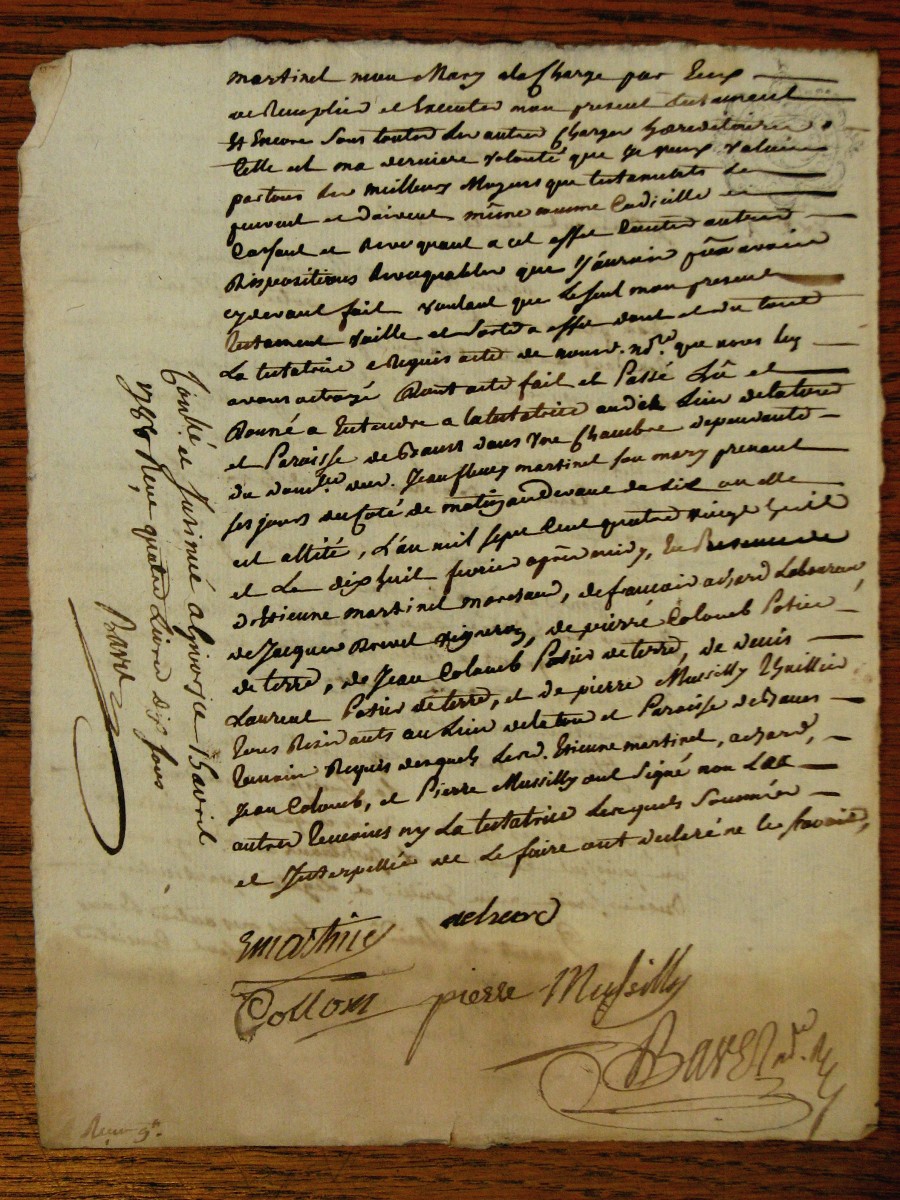 martinel mon Mary de Charge par Eux
de Remplir et Executer mon present testament
Et Encore sous toutes les autres Charges hereditaires.
Telle est ma derniere volonté que je veux valoir
par tous les meilleurs Moyens que testaments se
peuvent et doivent même comme Codicille en
Cassant et Revoquant a cet effet toutes autres
Dispositions Revoquables que J'aurois pû avoir
cy devant fait voulant que le seul mon present
testament vaille et sorte a effet dont et du tout
La testatrice a Requis acte de nous d. no.re que nous luy
avons octroyé Dont acte fait et Passé Lû et
Donné a Entendre a la testatrice audit Lieu de la tour
et Paroisse de Baux dans une Chambre dependante
du dom.lle dud. Jean fleury martinel son mary prenant
ses jours du Coté de matin au devant de six ou elle
est allitée, L'an mil sept Cent quatre vingt huit
et Le dix huit fevrier après midy, En Presence de
d'Etienne martinel marchand, de françois achard Laboureur
de Jacques Brevet Vigneron, de pierre Colomb Potier
de terre, de Jean Colomb Potier de terre, de denis
Laurent Potier de terre, et de pierre Mussilly thuillier
tous Residants au Lieu de la tour et Paroisse de Baux
temoins Requis desquels Lesd. Etienne martinel, achard,
Jean Colomb, et Pierre Mussilly ont signé non Les
autres temoins ny La testatrice Lesquels sommés
et Interpellés de Le faire ont declaré ne le savoir,
Emartinel achard
Collom pierre Mussilly
Bavet no.re
Controlé et Insinué a le 15 avril
1788 Reçu quatre Livres dix sous
Bavet
Reçu